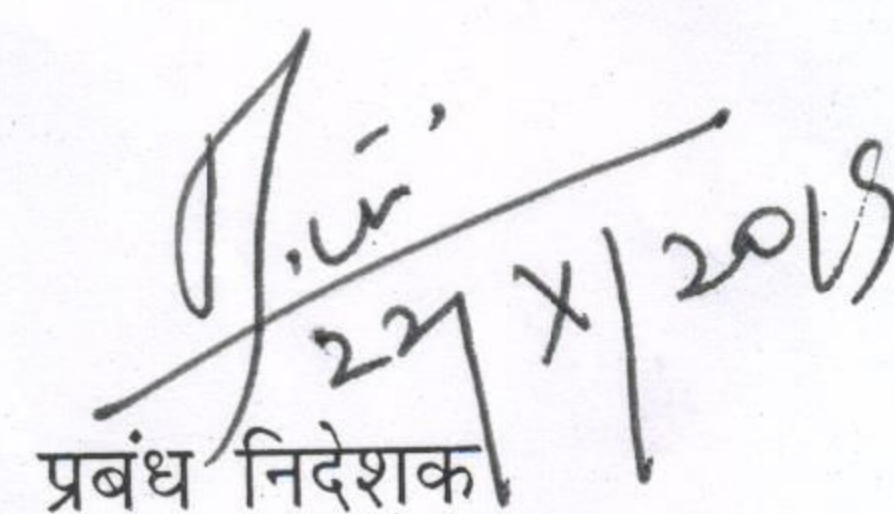 22/X/2019
प्रबंध निदेशक